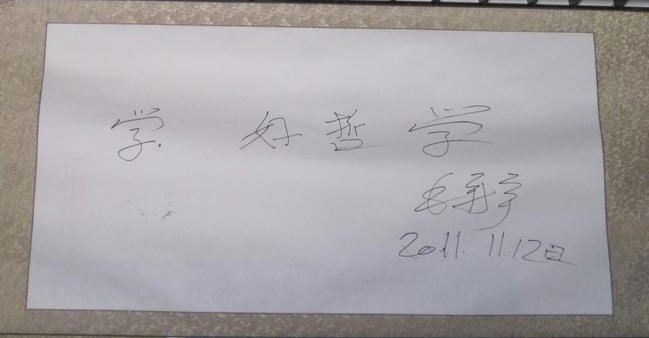 学 好哲学
毛新宇
2011.11.12日